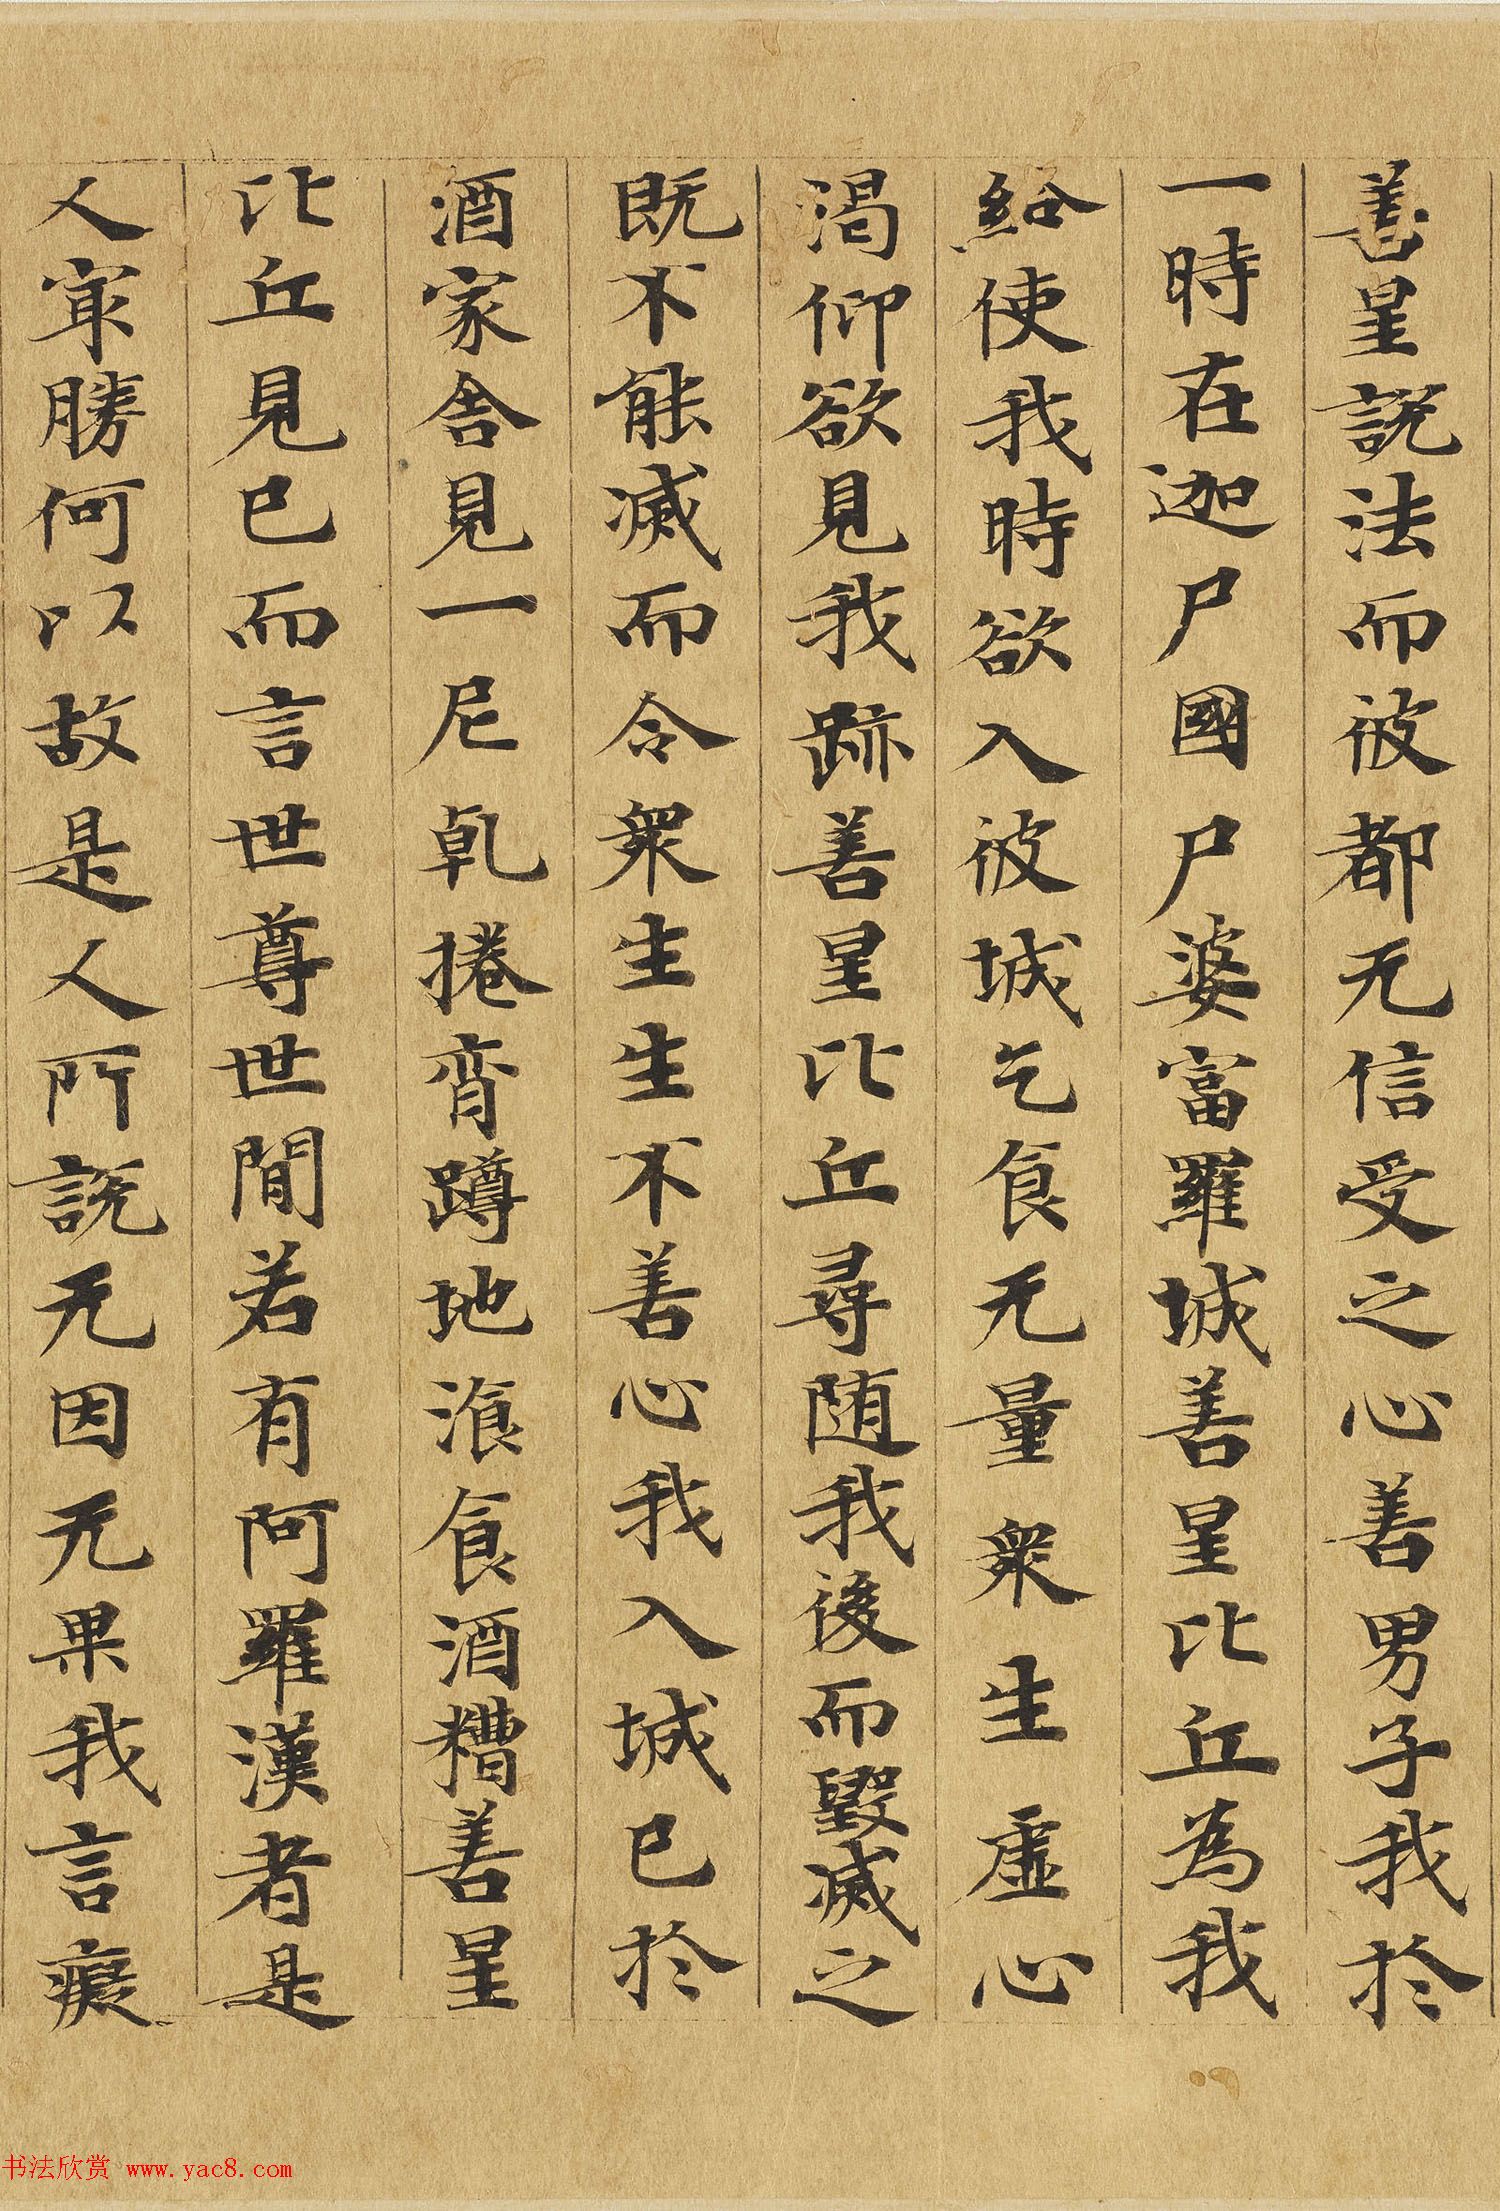 善星說法而彼都无信受之心善男子我於
一時在迦尸國尸婆富羅城善星比丘為我
給使我時欲入彼城乞食无量眾生虛心
渴仰欲見我跡善星比丘尋随我後而毀滅之
既不能滅而令眾生生不善心我入城已於
酒家舍見一尼乹捲脊蹲地飡食酒糟善星
比丘見已而言世尊世間若有阿羅漢者是
人冣勝何以故是人所說无因无果我言癡
书法欣赏 www.yac8.com